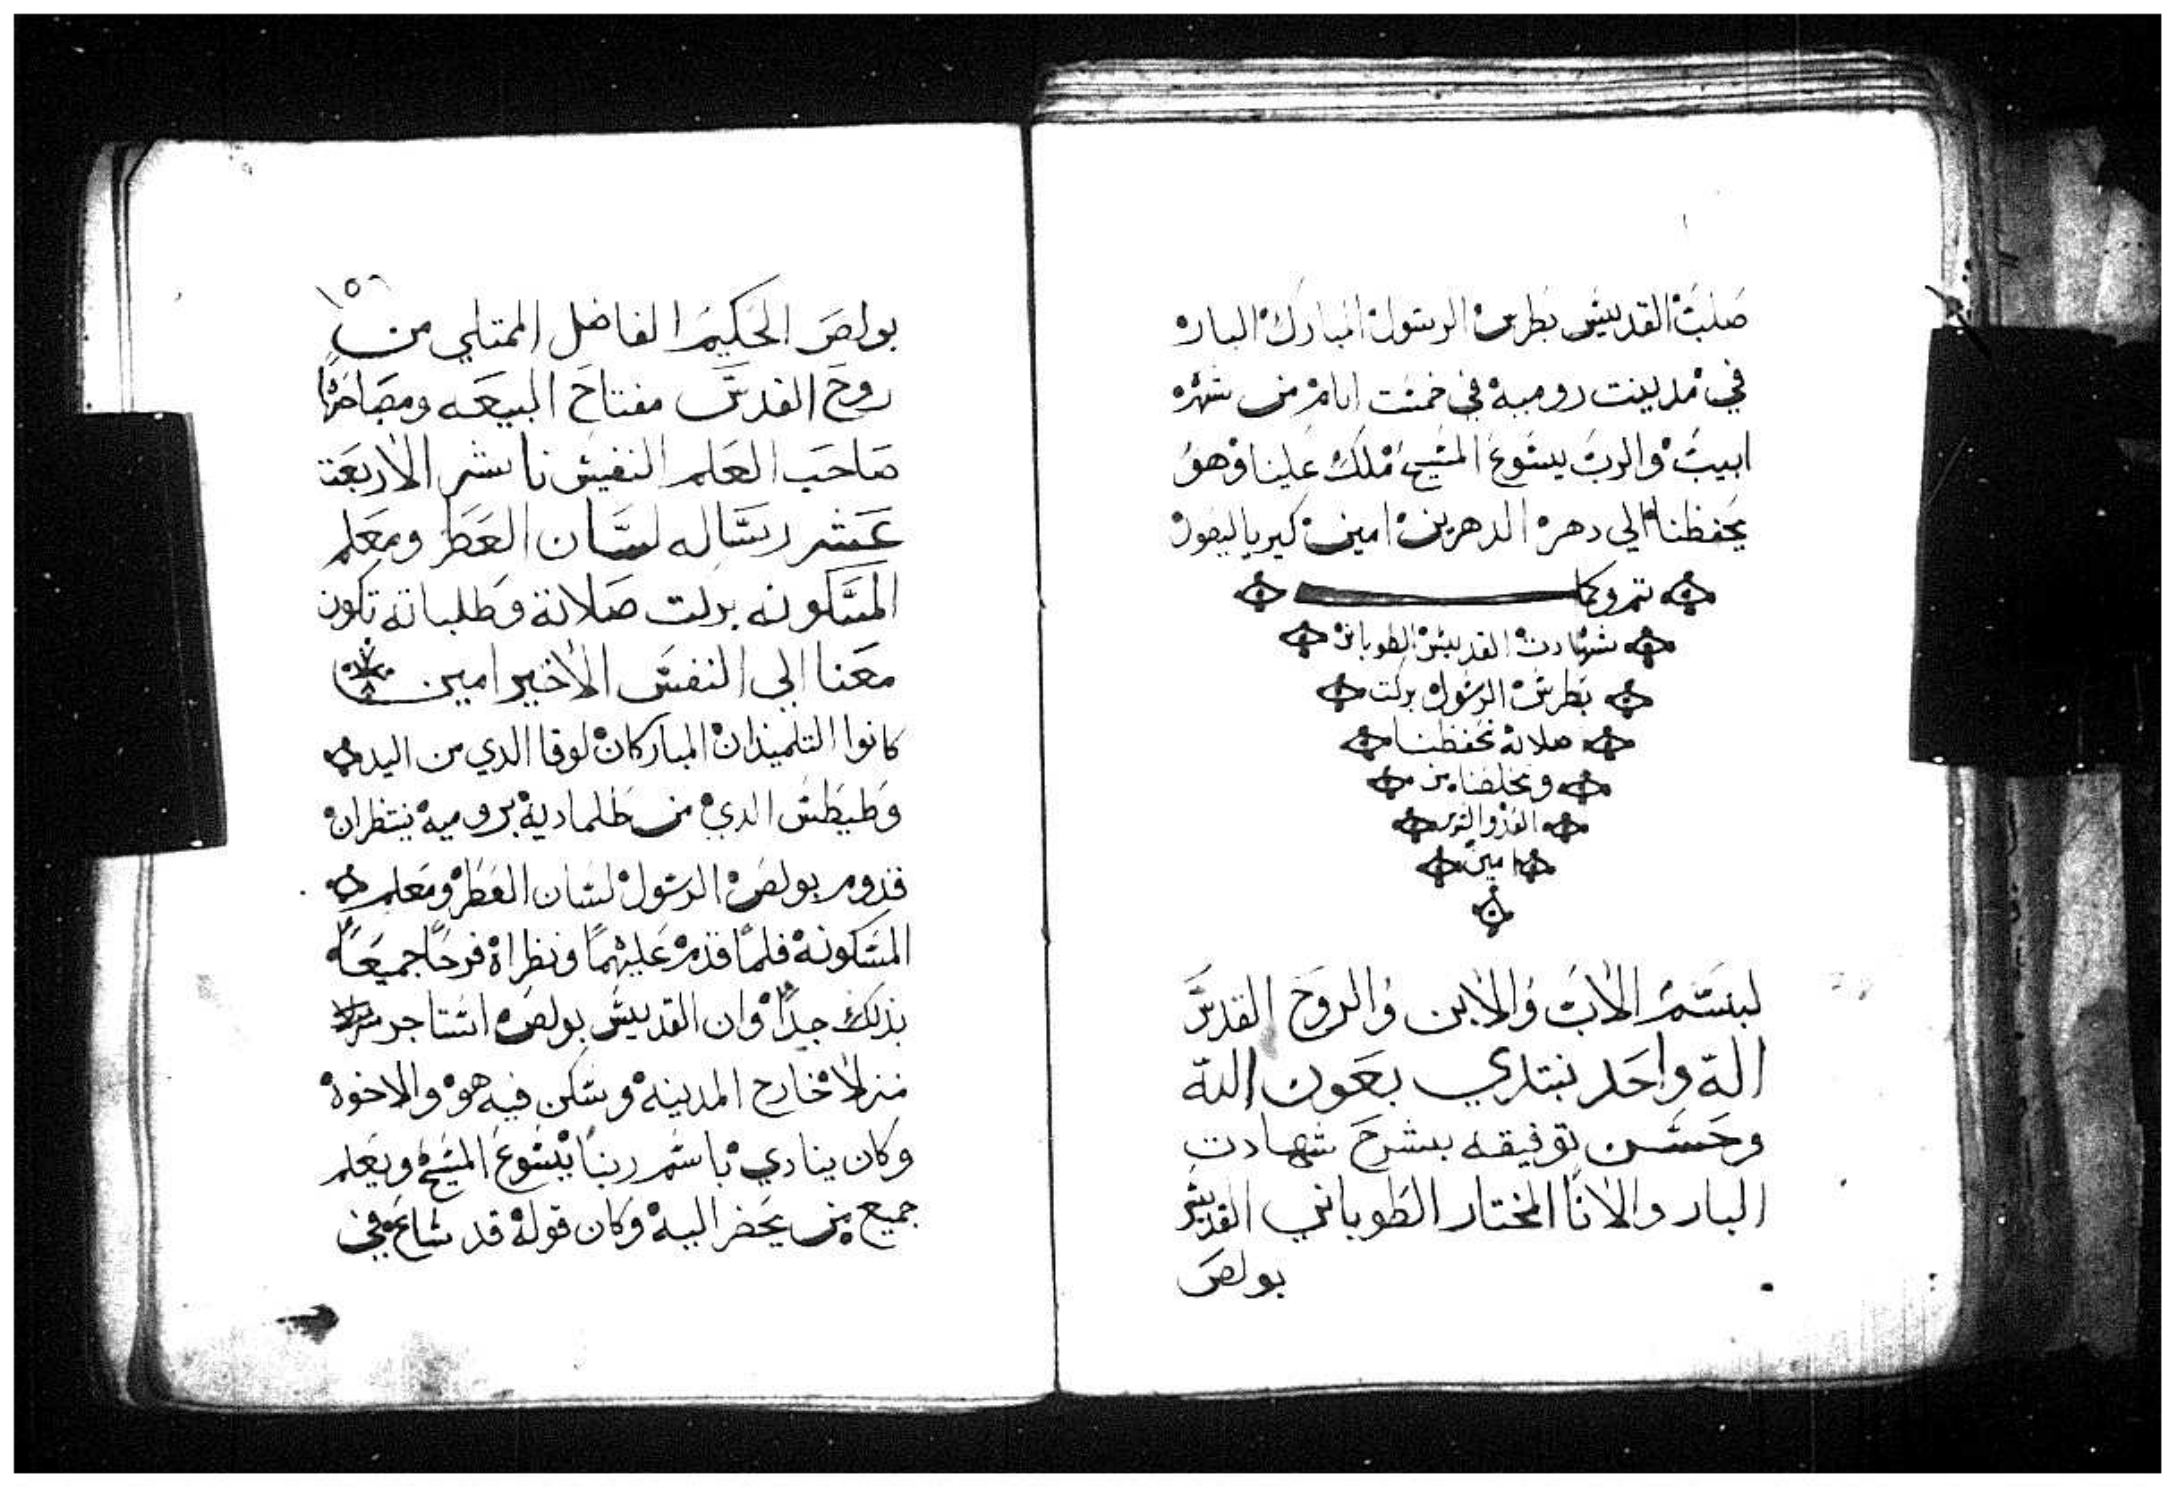 صلبت القديس بطرس الرسول المبارك البار
في مدينت روميه في خمست ايام من شهر
ابيب والرب يسوع المسيح ملك علينا وهو
يحفظنا الي دهر الدهرين امين كيرياليصون
تم وكمل
شهادت القديس الطوباني
بطرس الرسول بركت
صلاته تحفظنا
وتخلصنا من
امين
لبسم الاب والابن والروح القدس
اله واحد نبتدي بعون الله
وحسن توفيقه بشرح شهادت
البار والانا المختار الطوباني القديس
بولص
١٥٦
بولص الحكيم الفاضل الممتلي من
روح القدس مفتاح البيعه ومصباحها
صاحب العلم النفيس ناشر الاربعة
عشر رساله لسان العطر ومعلم
المسكونه بركت صلاتة وطلباته تكون
معنا الي النفس الاخير امين
كانوا التلميذان المباركان لوقا الدي من اليد
وطيطس الدي من ظلمادية بروميه ينتظران
قدوم بولص الرسول لسان العطر ومعلم
المسكونه فلما قدم عليهما ونظراه فرحا جميعا
بذلك جدا وان القديس بولص استاجر
منزلا خارج المدينه وسكن فيه هو والاخوه
وكان ينادي باسم ربنا يسوع المسيح ويعلم
جميع من يحضر اليه وكان قوله قد شاع في